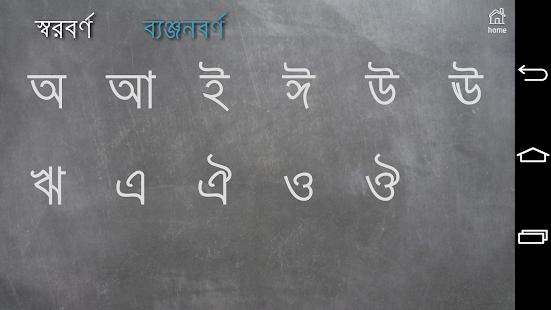 স্বরবর্ণ ব্যঞ্জনবর্ণ home
অ আ ই ঈ উ ঊ
ঋ এ ঐ ও ঔ